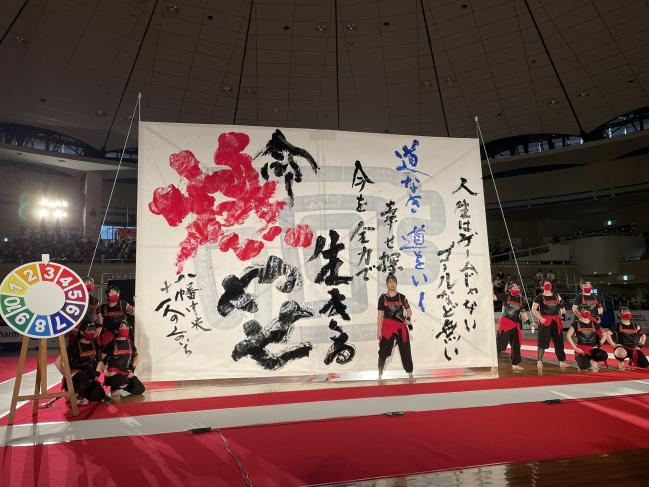 人生はゲームじゃない
ゴールなど無い
道なき道をいく
幸せ探
今を全力で
生きる
命
のせ
八幡中央
1 2 3 4 5 6 7 8 9 10